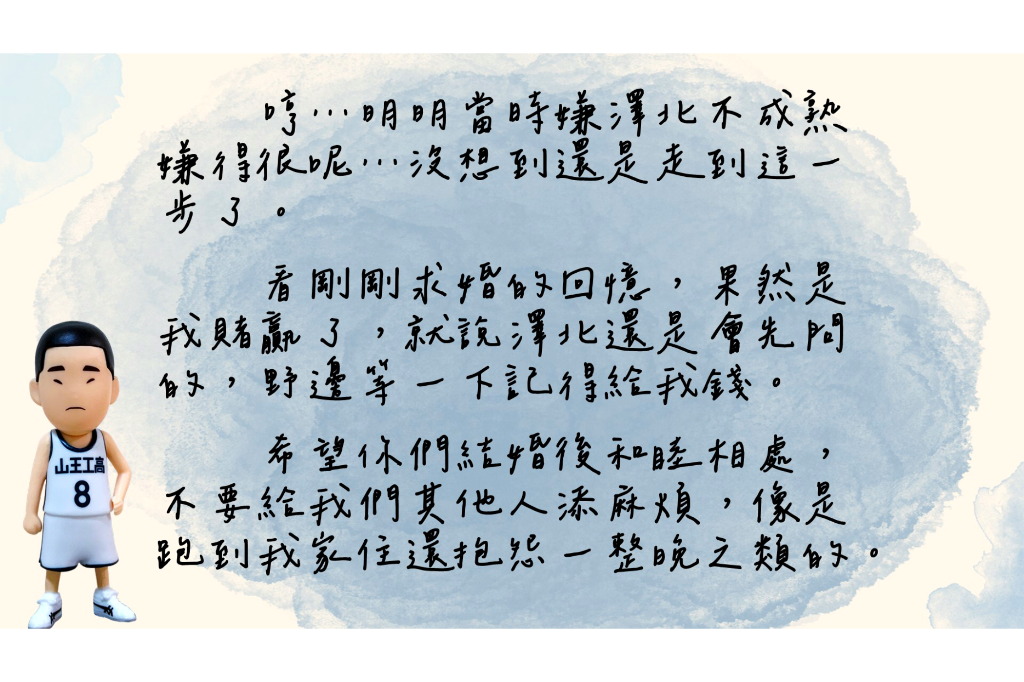 哼…明明當時嫌澤北不成熟
嫌得很呢…沒想到還是走到這一
步了。
看剛剛求婚的回憶，果然是
我賭贏了，就說澤北還是會先問
的，野邊等一下記得給我錢。
希望你們結婚後和睦相處，
不要給我們其他人添麻煩，像是
跑到我家住還抱怨一整晚之類的。
山王工高
8